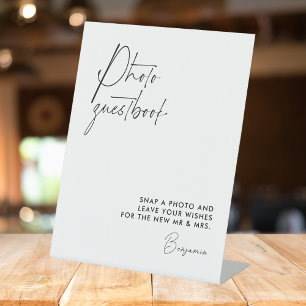 Photo
guestbook
SNAP A PHOTO AND
LEAVE YOUR WISHES
FOR THE NEW MR & MRS.
Benjamin